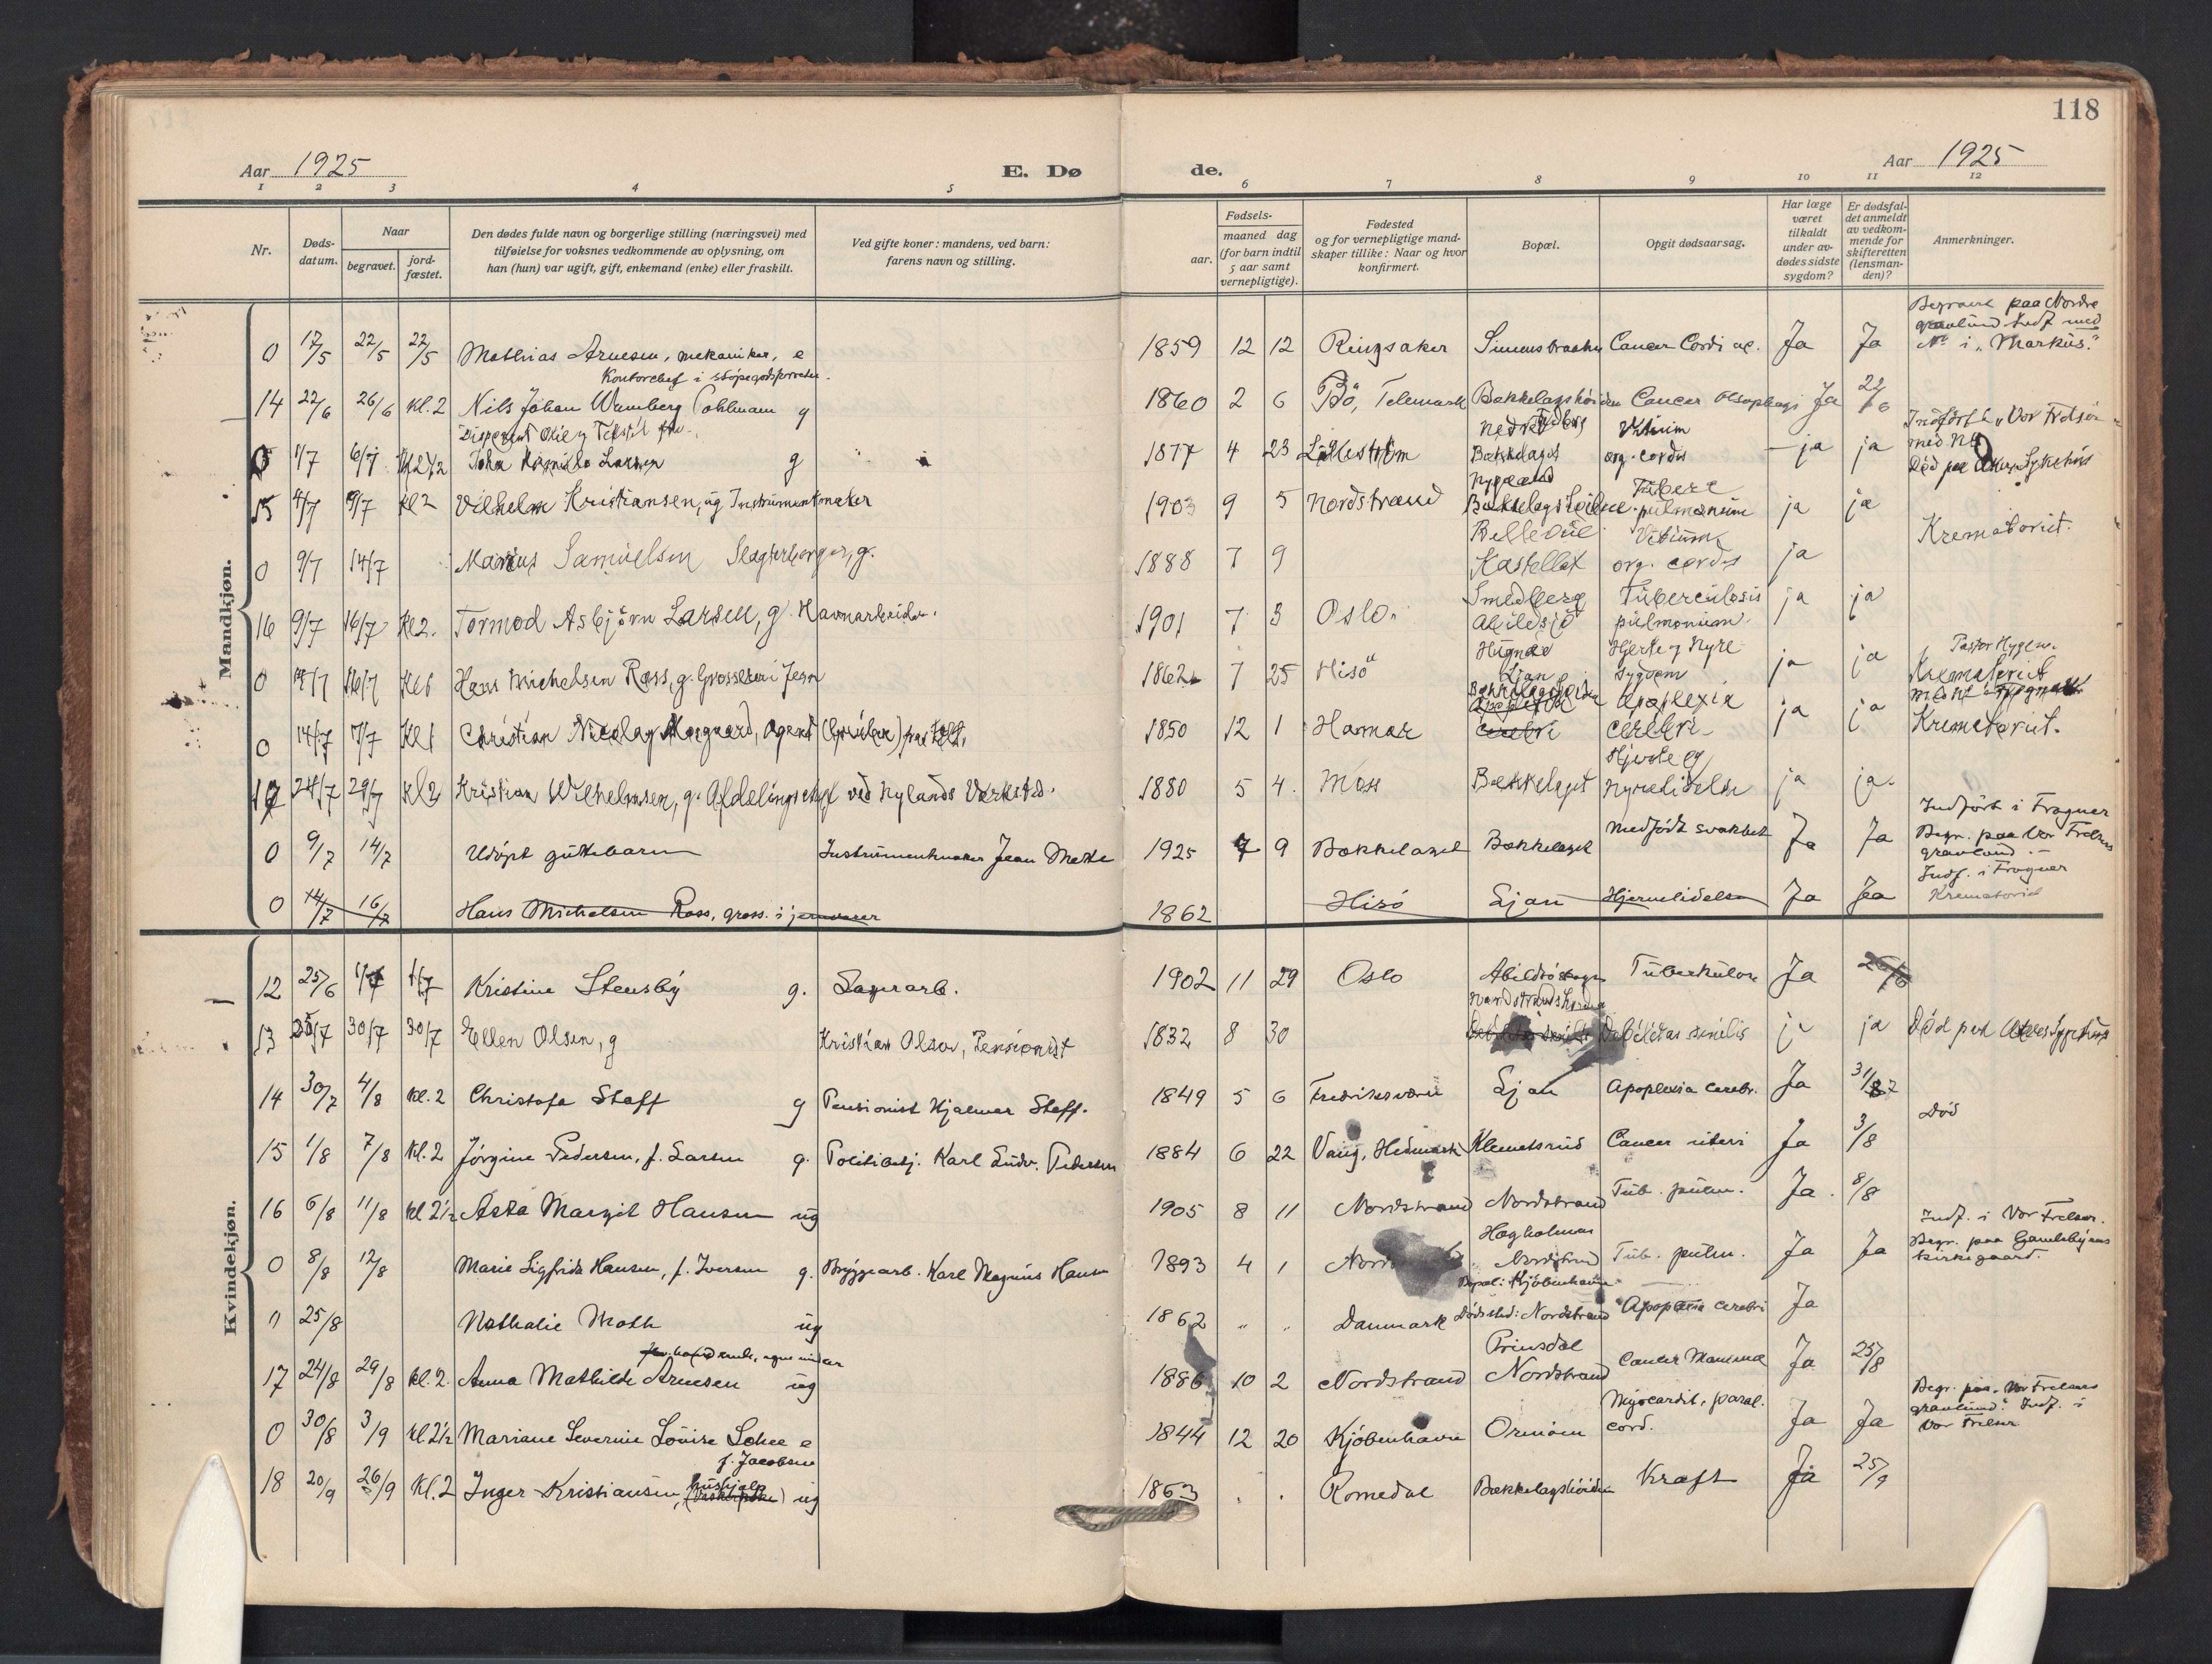 118
Aar 1925 E. Dø de. Aar 1925
1 2 3 4 5 6 7 8 9 10 11 12
Nr. Døds-datum. Naar begravet. jord-fæstet. Den dødes fulde navn og borgerlige stilling (næringsvei) med tilføielse for voksnes vedkommende av oplysning, om han (hun) var ugift, gift, enkemand (enke) eller fraskilt. Ved gifte koner: mandens, ved barn: farens navn og stilling. Fødsels- aar. maaned dag (for barn indtil 5 aar samt vernepligtige). Fødested og for vernepligtige mand-skaper tillike: Naar og hvor konfirmert. Bopæl. Opgit dødsaarsag. Har læge været tilkaldt under av-dødes sidste sygdom? Er dødsfal-det anmeldt av vedkom-mende for skifteretten (lensman-den)? Anmerkninger.
Mandkjøn.
0 17/5 22/5 22/5 Mathias Arnesen, mekaniker, e 1859 12 12 Ringsaker Cancer Cordi Ja Ja paa Nordre gravlund Indf med No i "Markus."
14 22/6 26/6 Kl. 2 Nils Johan g 1860 2 6 Bö, Telemark Bækkelagshöiden Cancer Ja 22/6
1/7 6/7 Larsen g 1877 4 23 Bækkelaget Vitium org. cordis ja ja Död paa Aker Sykehus
15 4/7 9/7 Kl 2 Vilhelm Kristiansen, ug Instrumentmaker 1903 9 5 Nordstrand Bækkelagshöidene pulmonum ja ja
0 9/7 14/7 Marius Samuelsen g. 1888 7 9 Bellevue Kastellet Vitium org. cordis ja Krematoriet.
16 9/7 16/7 Kl 2. Tormod Asbjörn Larsen, g. Havnarbeider. 1901 7 3 Oslo. Smedberg Abildsjö Tuberculosis pulmonum. ja ja
0 14/7 16/7 Kl 1 Hans Michelsen Ross, g. Grosserer i Jern 1862 7 25 Hisö Ljan Hjerte og Nyre sygdom ja ja Pastor Hygen. Krematoriet
0 14/7 17/7 Kl 1 Christian Nicolay Agent 1850 12 1 Hamar Apoplexia cerebri ja ja Krematoriet.
17 24/7 29/7 Kl 2 Kristian Wilhelmsen, g. Afdelingschef ved Nylands Verksted. 1880 5 4. Moss Bækkelaget Hjerte og Nyrelidelse ja ja.
0 9/7 14/7 Udöpt guttebarn Instrumentmaker Jean 1925 7 9 Bækkelaget Bækkelaget Medfödt svakhet Ja Ja Indfört i Frogner Begr. paa Vor Frelsers gravlund
0 14/7 16/7 Hans Michelsen Ross, gross. i jernvarer 1862 Hisö Ljan Hjernelidelse Ja Ja Indf. i Frogner Krematoriet
Kvindekjøn.
12 25/6 1/7 1/7 Kristine Stensby g. Lagerarb. 1902 11 29 Oslo Tuberkulose Ja
13 25/7 30/7 30/7 Ellen Olsen, g Kristian Olsen, Pensionist 1832 8 30 Debilitas senilis ja ja Död paa Akers Sygehus
14 30/7 4/8 Kl. 2 Christofa Staff g Pensionist Hjalmar Staff. 1849 5 6 Fredriksværn Ljan Apoplexia cerebr. Ja 31/7
15 1/8 7/8 Kl. 2 Jörgine Pedersen, f. Larsen g. Politibetj. Karl Ludv. Pedersen 1884 6 22 Vang, Hedmark Klemetsrud Cancer uteri Ja 3/8 Död
16 6/8 11/8 Kl 2½ Asta Margit Hansen ug 1905 8 11 Nordstrand Nordstrand Tub. pulm. Ja. 8/8
0 8/8 12/8 Marie Sigfrida Hansen, f. Iversen g. Bryggearb. Karl Magnus Hansen 1893 4 1 Hogholmen Nordstrand Tub. pulm. Ja Ja Indf. i Vor Frelser. Begr. paa Gamlebyens kirkegaard.
0 25/8 Nathalie Moth ug 1862 " " Danmark Bopæl: Kjöbenhavn Dödssted: Nordstrand Apoplexia cerebri Ja
17 24/8 29/8 Kl. 2. Anna Mathilde Arnesen ug 1886 10 2 Nordstrand Prinsdal Nordstrand Cancer Mammae Ja 25/8
0 30/8 3/9 Kl. 2½ Mariane Severine Lovise e f. Jacobsen 1844 12 20 Kjöbenhavn Ormöen Myocardit, paral. cord. Ja Ja Begr. paa Vor Frelsers gravlund. Indf. i Vor Frelser
18 20/9 26/9 Kl. 2 Inger Kristiansen, hushjelp ug 1863 Romedal Bækkelagshöiden Kræft Ja 25/9